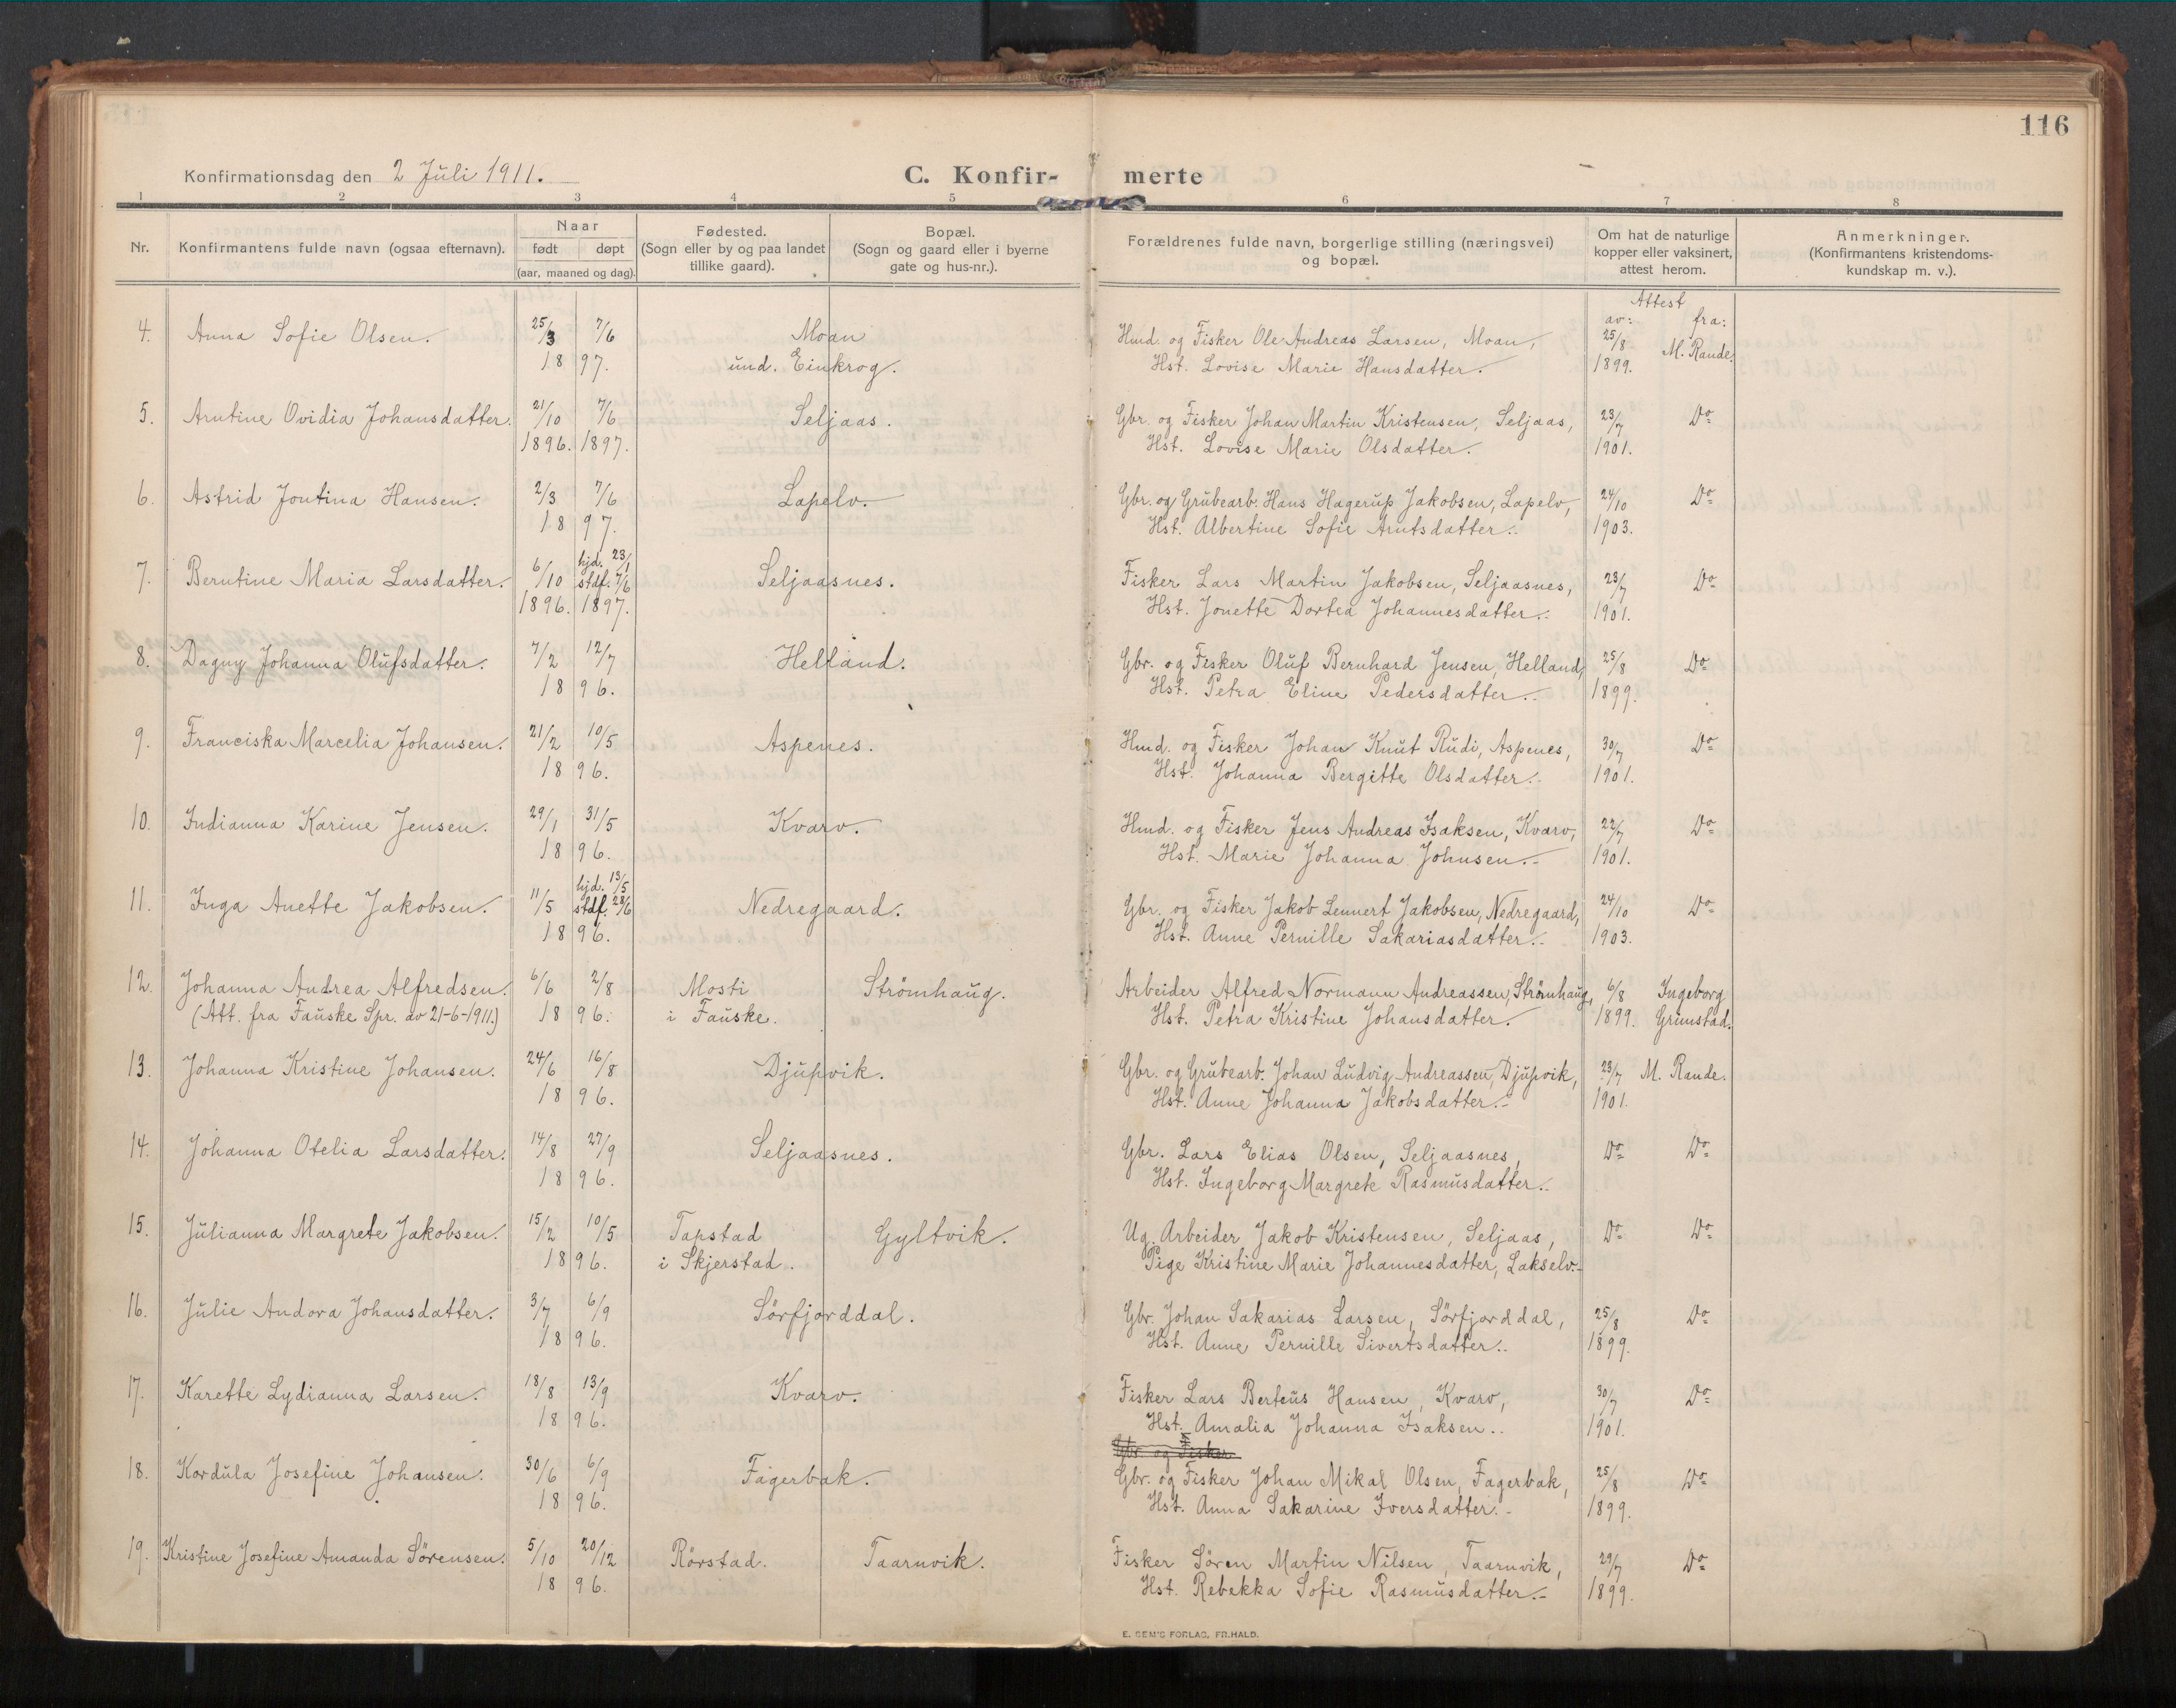 116
Konfirmationsdag den 2 Juli 1911.
C. Konfir- merte
1 2 3 4 5 6 7 8
Nr.
Konfirmantens fulde navn (ogsaa efternavn).
Naar
født døpt
(aar, maaned og dag).
Fødested.
(Sogn eller by og paa landet
tillike gaard).
Bopæl.
(Sogn og gaard eller i byerne
gate og hus-nr.).
Forældrenes fulde navn, borgerlige stilling (næringsvei)
og bopæl.
Om hat de naturlige
kopper eller vaksinert,
attest herom.
Anmerkninger.
(Konfirmantens kristendoms-
kundskap m. v.).
Attest
av: fra:
4. Anna Sofie Olsen. 25/3 7/6 Moan Hmd. og Fisker Ole Andreas Larsen, Moan, 25/8 M. Rande.
1897. und. Einkrog. Hst. Lovise Marie Hansdatter. 1899.
5. Arntine Ovidia Johansdatter. 21/10 7/6 Seljaas. Gbr. og Fisker Johan Martin Kristensen, Seljaas, 23/7 Do
1896. 1897. Hst. Lovise Marie Olsdatter. 1901.
6. Astrid Jontina Hansen. 2/3 7/6 Lapelv. Gbr. og Grubearb. Hans Hagerup Jakobsen, Lapelv, 24/10 Do
1897. Hst. Albertine Sofie Arntsdatter. 1903.
hjd. 23/1
7. Berntine Maria Larsdatter. 6/10 stdf. 7/6 Seljaasnes. Fisker Lars Martin Jakobsen, Seljaasnes, 23/7 Do
1896. 1897. Hst. Jonette Dortea Johannesdatter. 1901.
8. Dagny Johanna Olufsdatter. 7/2 12/7 Helland. Gbr. og Fisker Oluf Bernhard Jensen, Helland, 25/8 Do
1896. Hst. Petra Eline Pedersdatter. 1899.
9. Franciska Marcelia Johansen. 21/2 10/5 Aspenes. Hmd. og Fisker Johan Knut Rudi, Aspenes, 30/7 Do
1896. Hst. Johanna Bergitte Olsdatter. 1901.
10. Indianna Karine Jensen. 29/1 31/5 Kvarv. Hmd. og Fisker Jens Andreas Isaksen, Kvarv, 22/7 Do
1896. Hst. Marie Johanna Johnsen. 1901.
hjd. 13/5
11. Inga Anette Jakobsen. 11/5 stdf. 28/6 Nedregaard. Gbr. og Fisker Jakob Lennert Jakobsen, Nedregaard, 24/10 Do
1896. Hst. Anne Pernille Sakariasdatter. 1903.
12. Johanna Andrea Alfredsen. 6/6 2/8 Mosti Strömhaug. Arbeider Alfred Normann Andreassen, Strömhaug, 6/8 Ingeborg
(Att. fra Fauske Spr. av 21-6-1911.) 1896. i Fauske. Hst. Petra Kristine Johansdatter. 1899. Grimstad.
13. Johanna Kristine Johansen. 24/6 16/8 Djupvik. Gbr. og Grubearb. Johan Ludvig Andreassen, Djupvik, 23/7 M. Rande.
1896. Hst. Anne Johanna Jakobsdatter. 1901.
14. Johanna Otelia Larsdatter. 14/8 27/9 Seljaasnes. Gbr. Lars Elias Olsen, Seljaasnes, Do Do
1896. Hst. Ingeborg Margrete Rasmusdatter.
15. Julianna Margrete Jakobsen. 15/2 10/5 Tapstad Gyltvik. Ug. Arbeider Jakob Kristensen, Seljaas, Do Do
1896. i Skjerstad. Pige Kristine Marie Johannesdatter, Lakselv.
16. Julie Andora Johansdatter. 3/7 6/9 Sörfjorddal. Gbr. Johan Sakarias Larsen, Sörfjorddal, 25/8 Do
1896. Hst. Anne Pernille Sivertsdatter. 1899.
17. Karette Lydianna Larsen. 18/8 13/9 Kvarv. Fisker Lars Berteus Hansen, Kvarv, 30/7 Do
1896. Hst. Amalia Johanna Isaksen. 1901.
Gbr. og Fisker
18. Kordula Josefine Johansen. 30/6 6/9 Fagerbak. Gbr. og Fisker Johan Mikal Olsen, Fagerbak, 25/8 Do
1896. Hst. Anna Sakarine Iversdatter. 1899.
19. Kristine Josefine Amanda Sörensen. 5/10 20/12 Rörstad. Taarnvik. Fisker Sören Martin Nilsen, Taarnvik, 29/7 Do
1896. Hst. Rebekka Sofie Rasmusdatter. 1899.
E. SEM'S FORLAG, FR.HALD.